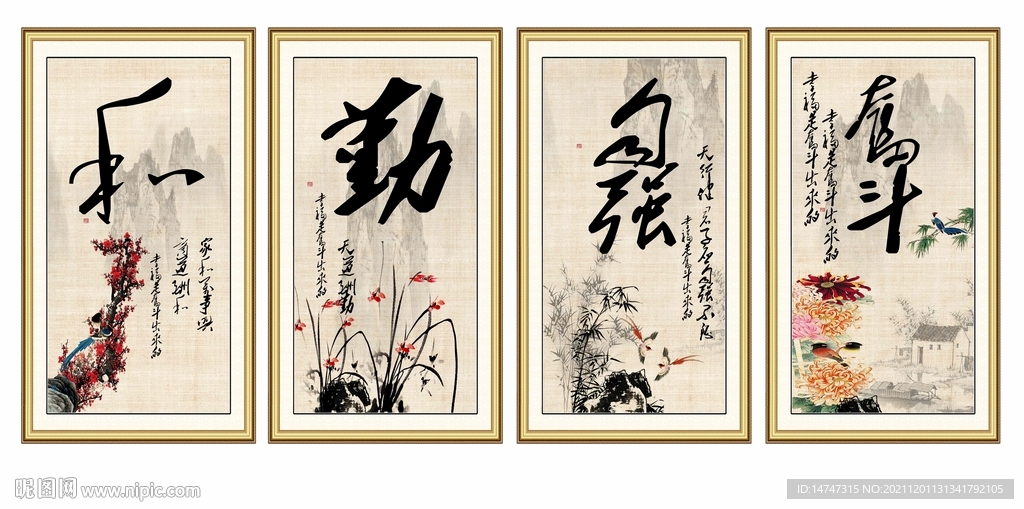 和
家和万事兴
商道酬和
幸福是奋斗出来的
勤
天道酬勤
幸福是奋斗出来的
自强
天行健君子以自强不息
幸福是奋斗出来的
奋斗
幸福是奋斗出来的
幸福是奋斗出来的
昵图网 www.nipic.com
ID:14747315 NO:20211201131341792105